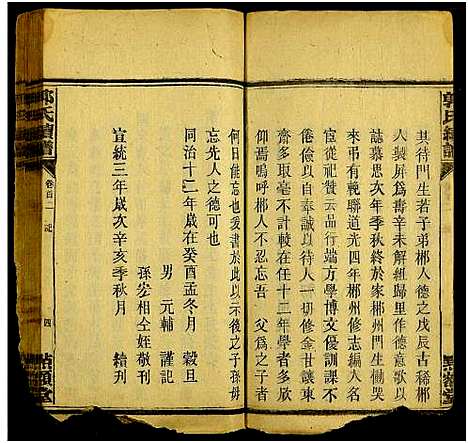 郭氏續譜
點頷堂
其待門生若子弟郴人德之戊辰古稀郴
人製屏為壽辛未解組歸里作德意歌以
誌慕思次年季秋終於家郴州門生慟哭
奠弔有輓聯道光四年郴州修志編入名
宦從祀贊云品行端方學博文優訓課不
倦儉以自奉誠以待人一切修金廿讓東
齋多取毫不計較在任十二年學者多景
仰焉嗚呼郴人不忍忘吾 父為之子者
何日能忘也爰書於此以示後之子孫毋
忘先人之德可也
同治十二年歲在癸酉孟冬月 穀旦
男 元輔 謹記
孫宏相仝姪敬刊
宣統三年歲次辛亥季秋月 續刊
郭氏續譜
卷首二
四
點頷堂